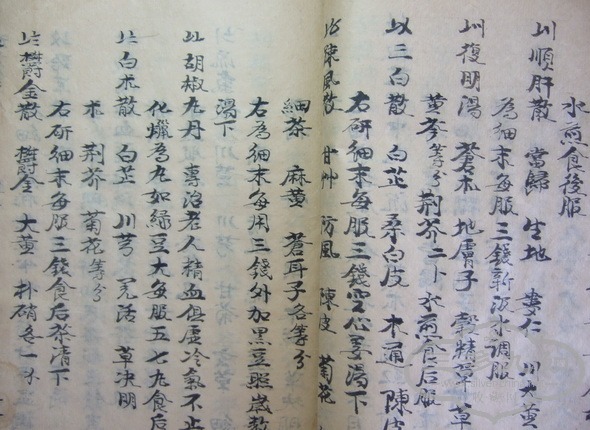 水煎食後服
順肝散 當歸 生地 妻仁 川大黄
為細末每服三錢新汲水調服
復明湯 蒼朮 地膚子 穀精草 草
黄芩等分 荆芥二卜水煎食后服
三白散 白芷 桑白皮 木通 陳皮
右研細末每服三錢空心姜湯下
陳風散 甘艸 防風 陳皮 菊花
細茶 麻黄 蒼耳子各等分
右為細末每用三錢外加黑豆照歲数
湯下
胡椒九丹 專治老人精血俱虚冷氣不止
化爛為九如緑豆大每服五七九食后
白朮散 白芷 川芎 羌活 草决明
朮 荆芥 菊花等分
右研細末每服三錢食后茶清下
欝金散 欝金 大黄 朴硝各一